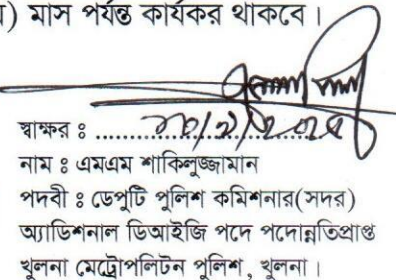 ) মাস পর্যন্ত কার্যকর থাকবে।
স্বাক্ষর ঃ ..................
নাম ঃ এমএম শাকিলুজ্জামান
পদবী ঃ ডেপুটি পুলিশ কমিশনার(সদর)
অ্যাডিশনাল ডিআইজি পদে পদোন্নতিপ্রাপ্ত
খুলনা মেট্রোপলিটন পুলিশ, খুলনা।